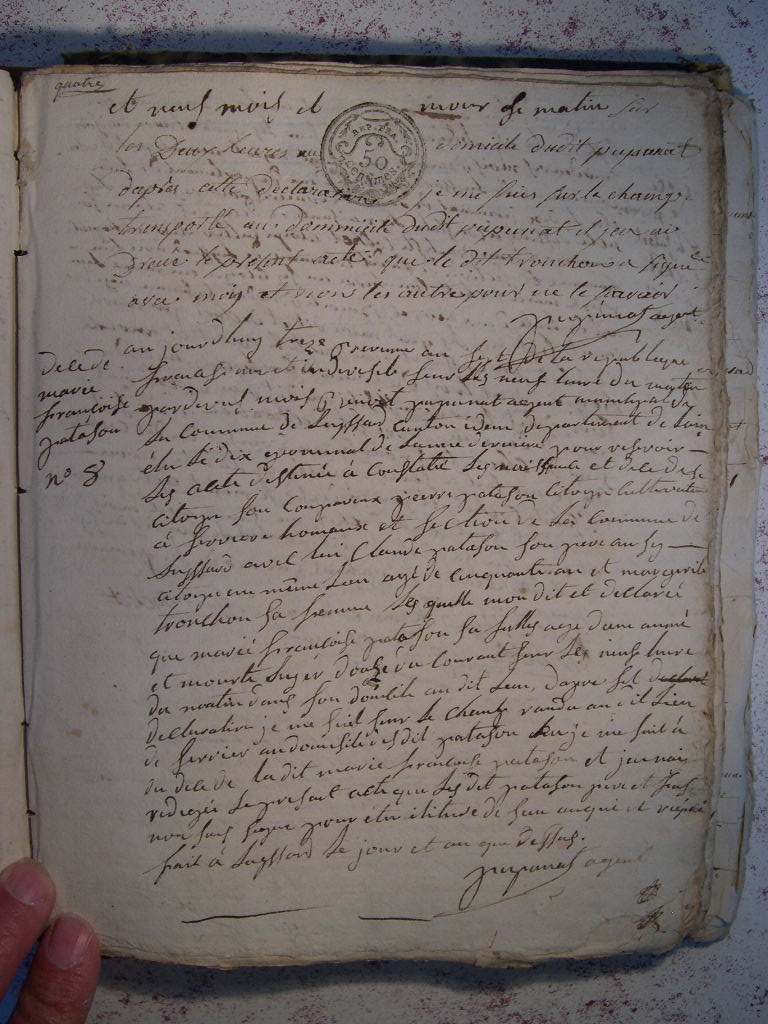 quatre
et neuf mois et mour ce matin sur
les Deux heures au domicile dudit pupunat
REP. FRA.
50
CENTIMES
dapres cette declaration je me suis sur le champ
transporté au dommicile dudit pupunat et jen ai
Dréssé le présent acte que le dit tronchon a signé
avec mois et non les autre pour ne le savoir
pupunat agent
decede
marie
françoise
patason
n° 8
aujourdhuy treze an sept De la republique
francaise une et indivisible sur les neuf heure du matin
pardevant mois pupunat agent municipal de
la commune de Suyssard Canton idem departement de lain
élu le dix de lanné derniere pour resevoir
les acte destinée à Constaté les naissance et decede de
citoyen Son Compareux pierre patason citoyen Cultivateur
à serriere homaux et section de la Commune de
Suyssard avec lui Claude patason son pere aussy
citoyen au même lieu agé de cinquante an et marguerite
tronchon sa femme les quelle mon dit et declaréé
que marie françoise patason sa fille age dune année
et mourte hyer douze du courant sur les neuf heure
du matin dans son domicile au dit lieu, dapre set
declaration je me suit sur le champ randu au dit lieu
de serrier au domicile du dit patason ou je me suit
du decede la dit marie françoise patason et jen nais
redregée le present acte que les dit patason pere et
non pas signe pour être ilitéré de Sen anquis et requi
fait à Suyssard le jour et an que dessus.
pupunat agent